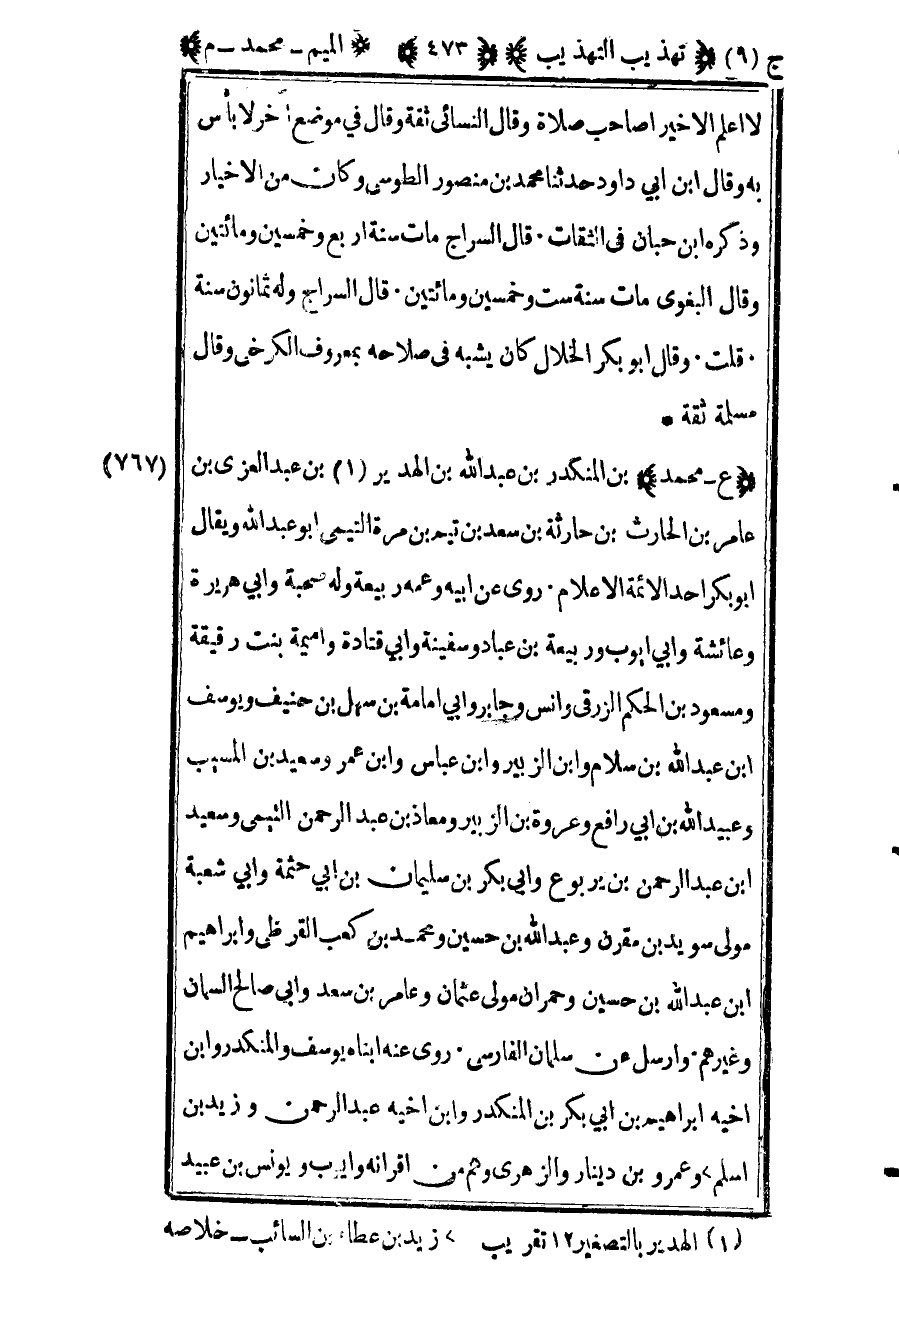 ج (٩) ﴿ تهذيب التهذيب ﴾ ﴿ ٤٧٣ ﴾ ﴿ الميم ـ محمد ـ م ﴾
لا اعلم الا خيرا صاحب صلاة وقال النسائى ثقة وقال في موضع آخر لا بأس
به وقال ابن ابي داود حدثنا محمد بن منصور الطوسي وكان من الاخيار
وذكره ابن حبان فى الثقات ٠ قال السراج مات سنة اربع وخمسين ومائتين
وقال البغوى مات سنة ست وخمسين ومائتين ٠ قال السراج وله ثمانون سنة
٠ قلت ٠ وقال ابو بكر الخلال كان يشبه فى صلاحه بمعروف الكرخي وقال
مسلمة ثقة •
(٧٦٧) ﴿ ع ـ محمد ﴾ بن المنكدر بن عبدالله بن الهدير (١) بن عبد العزى بن
عامر بن الحارث بن حارثة بن سعد بن تيم بن مرة التيمي ابو عبد الله ويقال
ابو بكر احد الائمة الاعلام ٠ روى عن ابيه وعمه ربيعة وله صحبة وابي هريرة
وعائشة وابي ايوب وربيعة بن عباد وسفينة وابي قتادة واميمة بنت رقيقة
ومسعود بن الحكم الزرقى وانس وجابر وابي امامة بن سهل بن حنيف ويوسف
ابن عبدالله بن سلام وابن الزبير وابن عباس وابن عمر وسعيد بن المسيب
وعبيدالله بن ابي رافع وعروة بن الزبير ومعاذ بن عبد الرحمن التيمى وسعيد
ابن عبدالرحمن بن يربوع وابي بكر بن سليمان بن ابي حثمة وابي شعبة
مولى سويد بن مقرن وعبدالله بن حسين ومحمد بن كعب القرظي وابراهيم
ابن عبدالله بن حسين وحمران مولى عثمان وعامر بن سعد وابي صالح السمان
وغيرهم ٠ وارسل عن سلمان الفارسي ٠ روى عنه ابناه يوسف والمنكدر وابن
اخيه ابراهيم بن ابي بكر بن المنكدر وابن اخيه عبدالرحمن وزيد بن
اسلم > وعمرو بن دينار والزهرى وهم من اقرانه وايوب ويونس بن عبيد
(١) الهدير بالتصغير ١٢ تقريب > زيد بن عطاء بن السائب ـ خلاصه